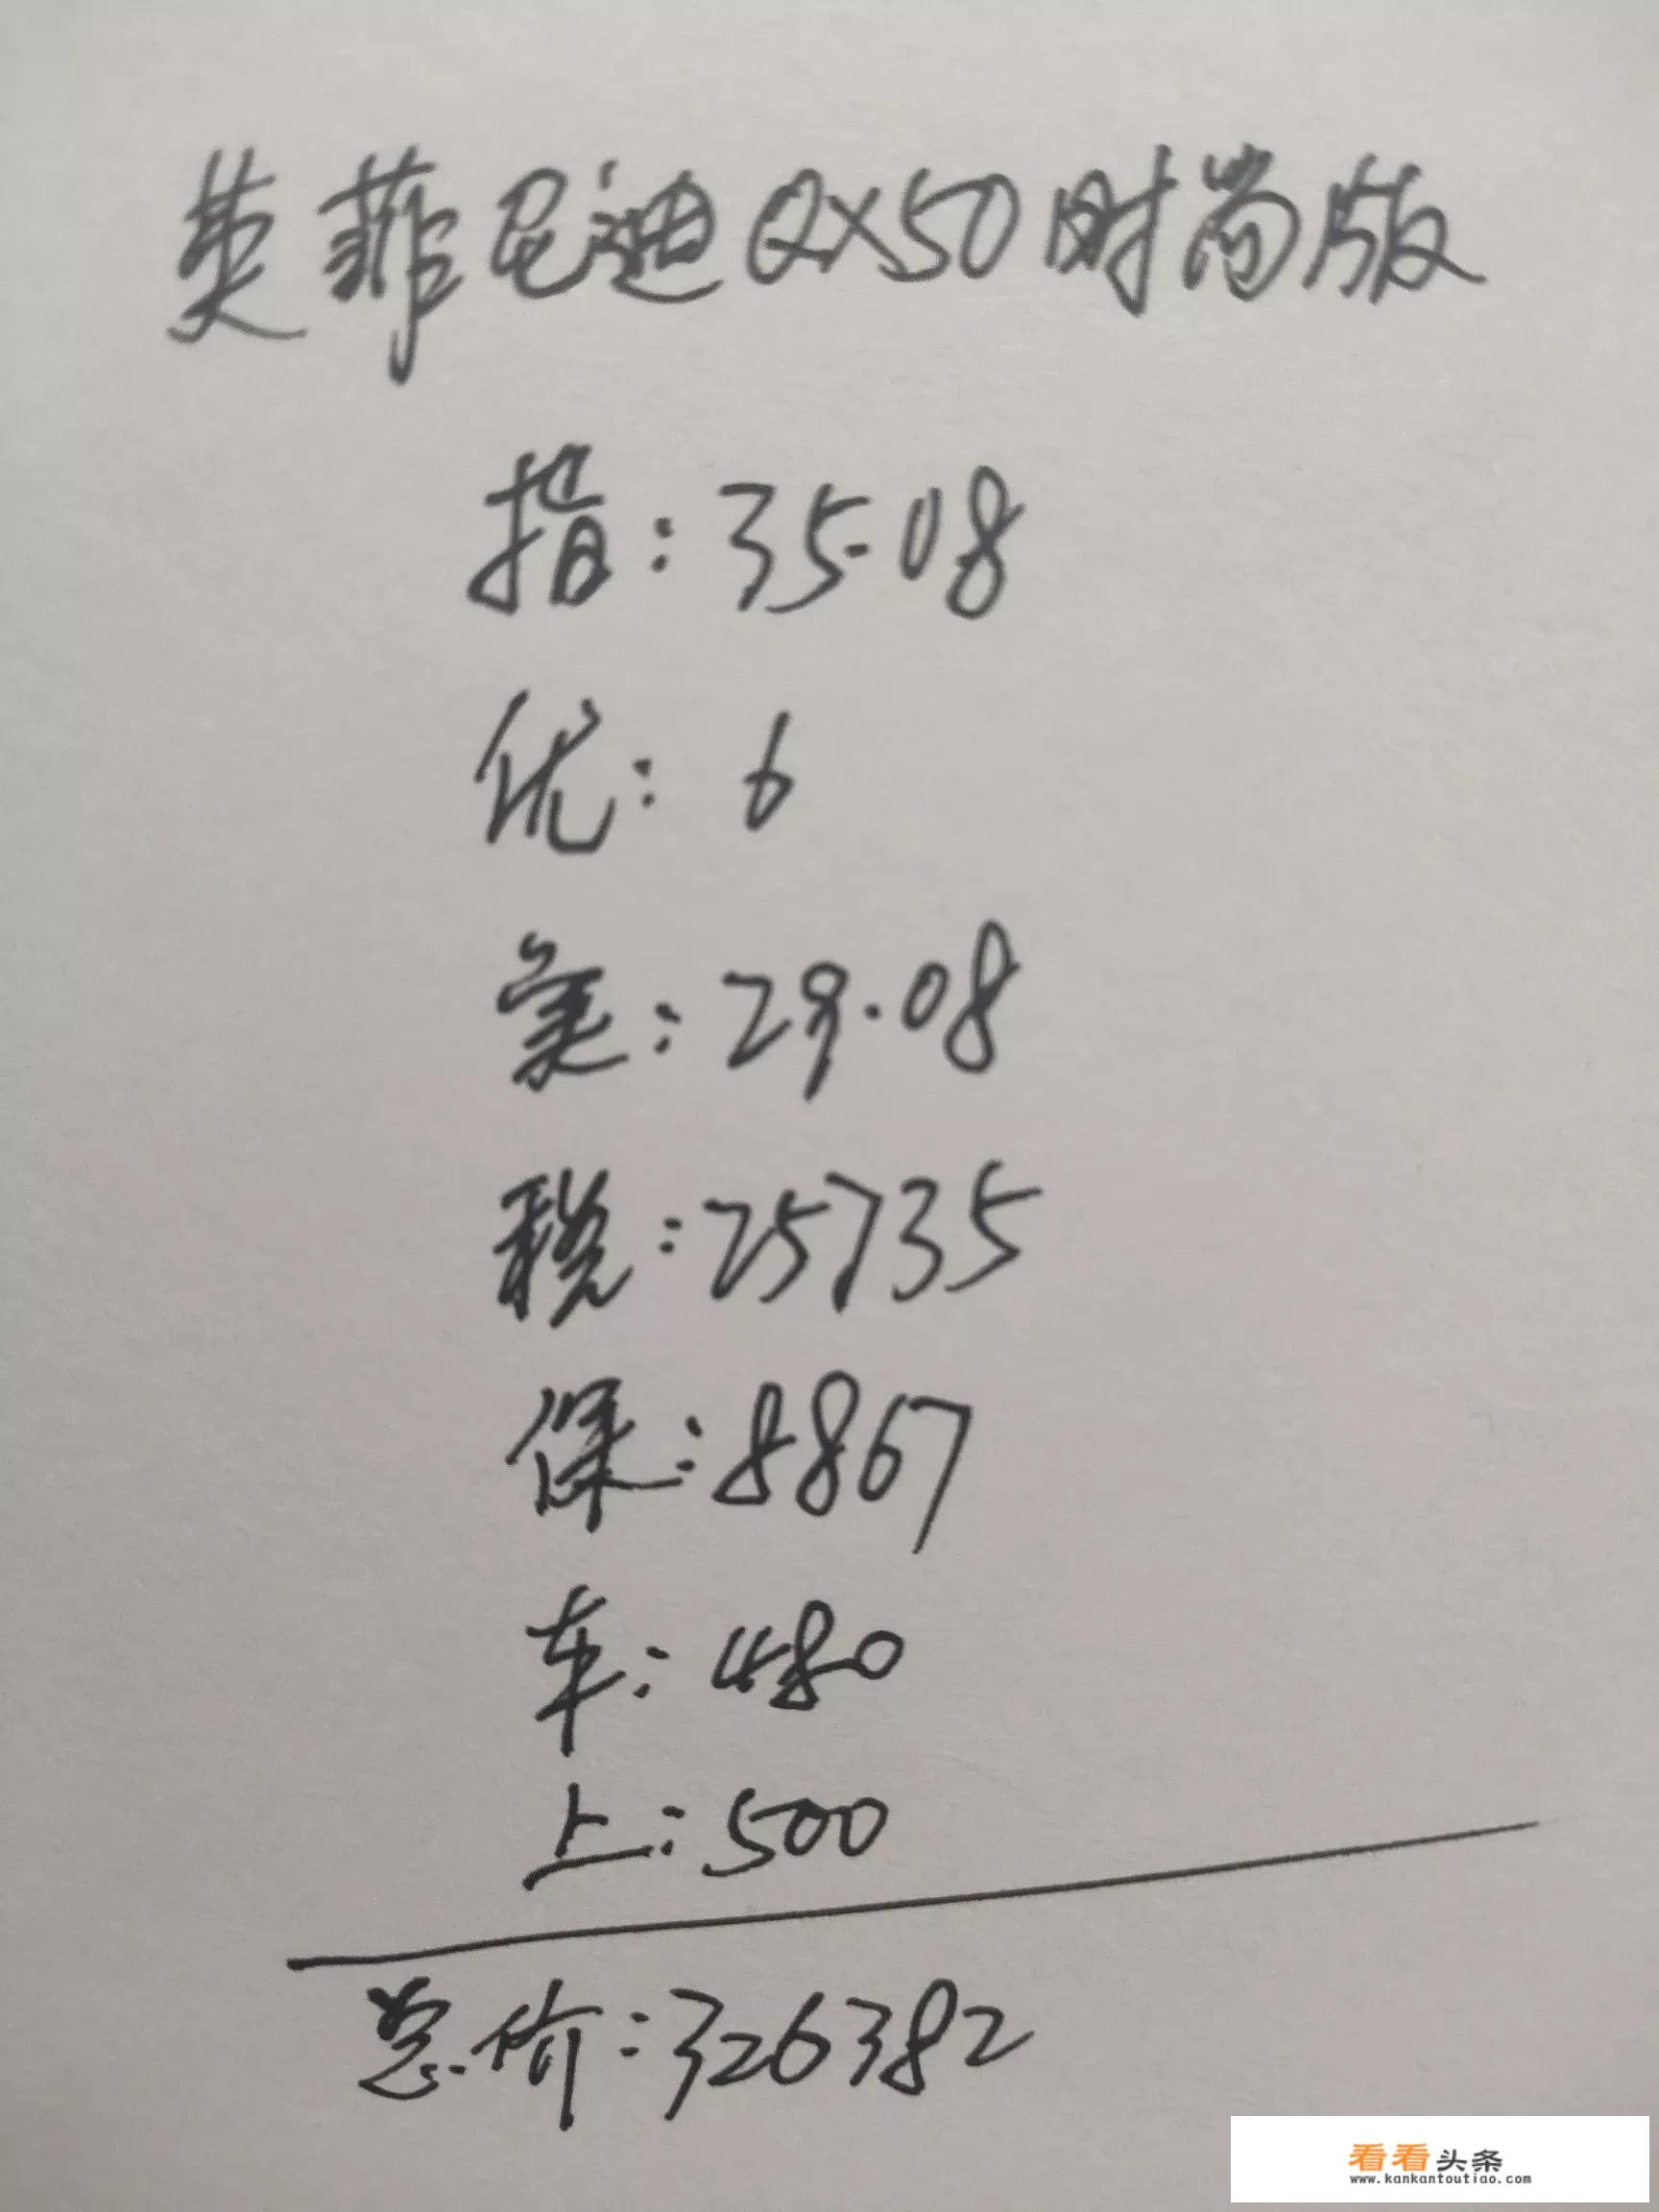 英菲尼迪QX50时尚版
指:35.08
优:6
实:29.08
税:25735
保:8867
车:480
上:500
总价:326382
看看头条
www.kankantoutiao.com